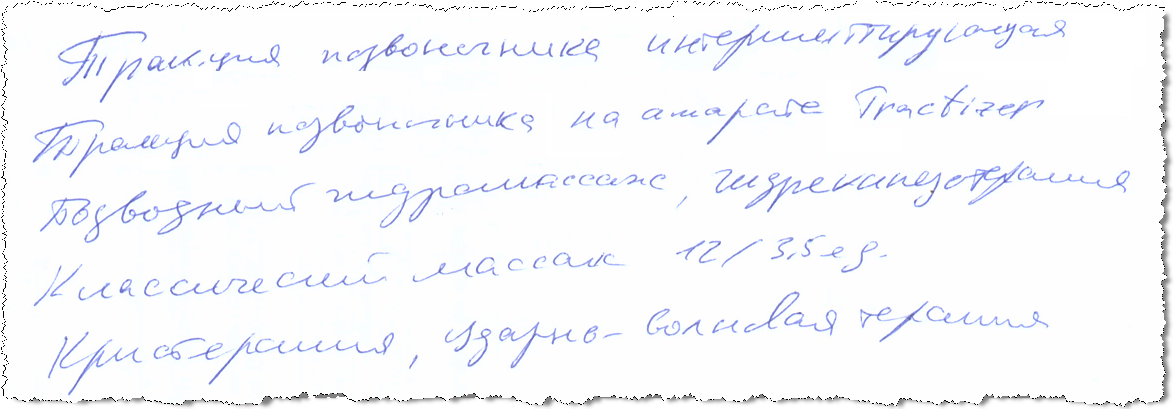 Тракция позвоночника интермиттирующая
Тракция позвоночника на апарате Tractizer
Подводный гидромассаж, гидрокинезотерапия
Классический массаж 12/3,5 ед.
Криотерапия, ударно-волновая терапия